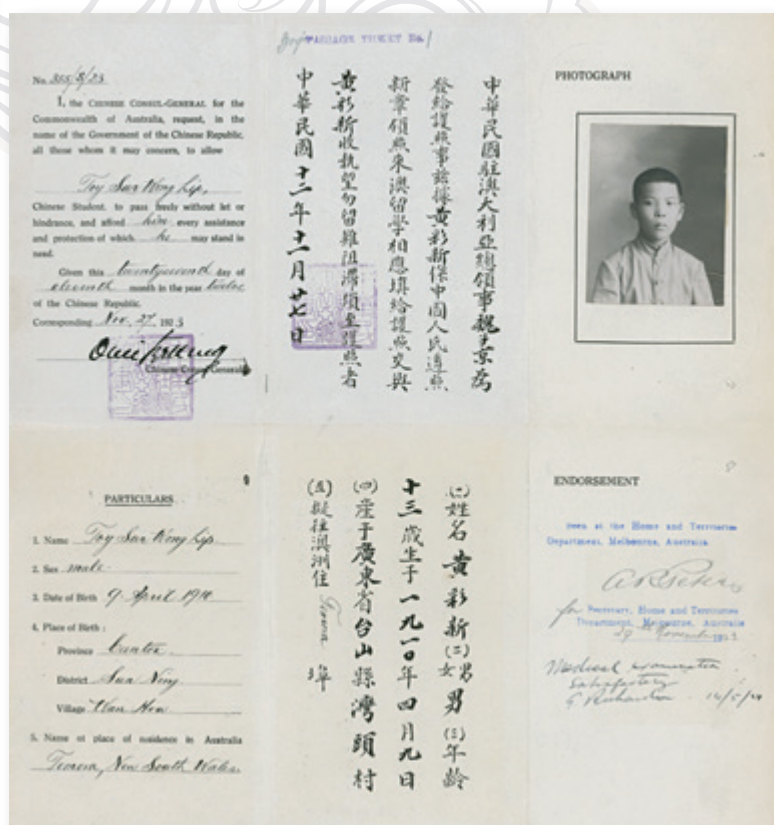 No. 355/S/23
I, the CHINESE CONSUL-GENERAL for the
Commonwealth of Australia, request, in the
name of the Government of the Chinese Republic,
all those whom it may concern, to allow
Toy San Wong Lip,
Chinese Student, to pass freely without let or
hindrance, and afford him every assistance
and protection of which he may stand in
need.
Given this twentyseventh day of
eleventh month in the year twelve
of the Chinese Republic.
Corresponding Nov. 27, 1923
Chinese Consul-General
PASSAGE TICKET No.
中華民國駐澳大利亞總領事魏子京為
發給護照事茲據黃彩新係中國人民遵照
新章領照來澳留學相應填給護照交與
黃彩新收執望勿留難阻滯須至護照者
中華民國十二年十一月廿七日
PHOTOGRAPH
PARTICULARS.
1. Name Toy San Wong Lip
2. Sex male.
3. Date of Birth 9 April 1910
4. Place of Birth :
Province Canton
District Sun Ning
Village Wan How
5. Name of place of residence in Australia
Temora, New South Wales.
(一)姓名黃彩新(二)男女男(三)年齡
十三歲生于一九一〇年四月九日
(四)產于廣東省台山縣灣頭村
(五)擬往澳洲住 Temora 埠
ENDORSEMENT
Seen at the Home and Territories
Department, Melbourne, Australia.
for Secretary, Home and Territories
Department, Melbourne, Australia
29th November 1923
Medical examination
Satisfactory
G Richardson 14/5/24